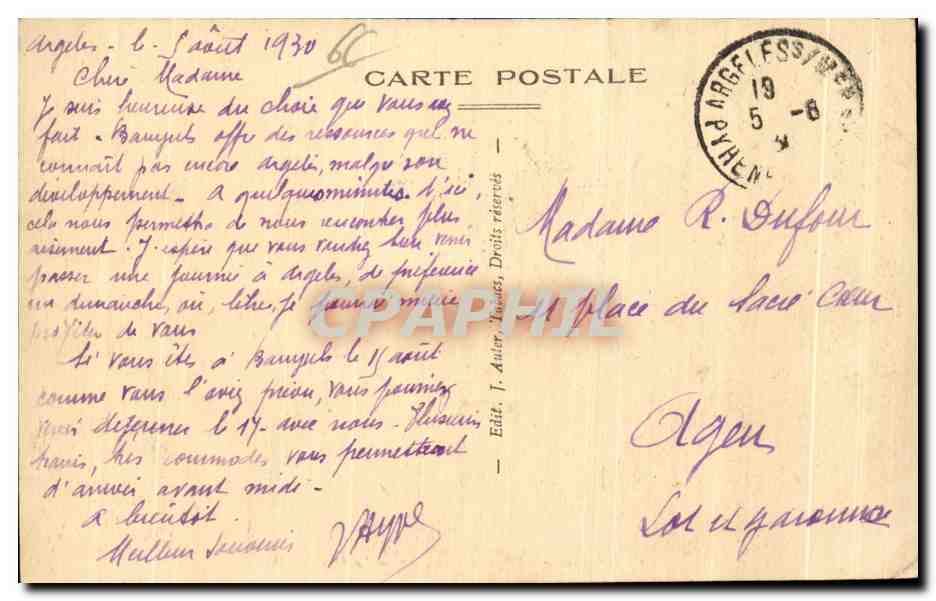 Argeles - le 5 août 1930
66
Chère Madame
Je suis heureuse du choix que vous avez
fait - Banyuls offre des ressources que ne
connait pas encore Argelès, malgré son
developpement - A quelques minutes d'ici,
cela nous permettra de nous rencontrer plus
aisement. J'espère que vous voudrez bien venir
passer une journée à Argeles, de préférence
un dimanche, où, libre, je pourrai mieux
profiter de vous
Si vous êtes à Banyuls le 15 août
comme vous l'aviez prévu, vous pourriez
venir déjeuner le 17 - avec nous - Plusieurs
trains, très commodes vous permettent
d'arriver avant midi -
A bientôt.
Meilleurs souvenirs
CARTE POSTALE
Edit. J. Auter, Droits réservés
ARGELES S/MER
PYR
19
5 -8
Madame R. Dufour
place du Sacré Cœur
Agen
Lot et garonne
CPAPHIL